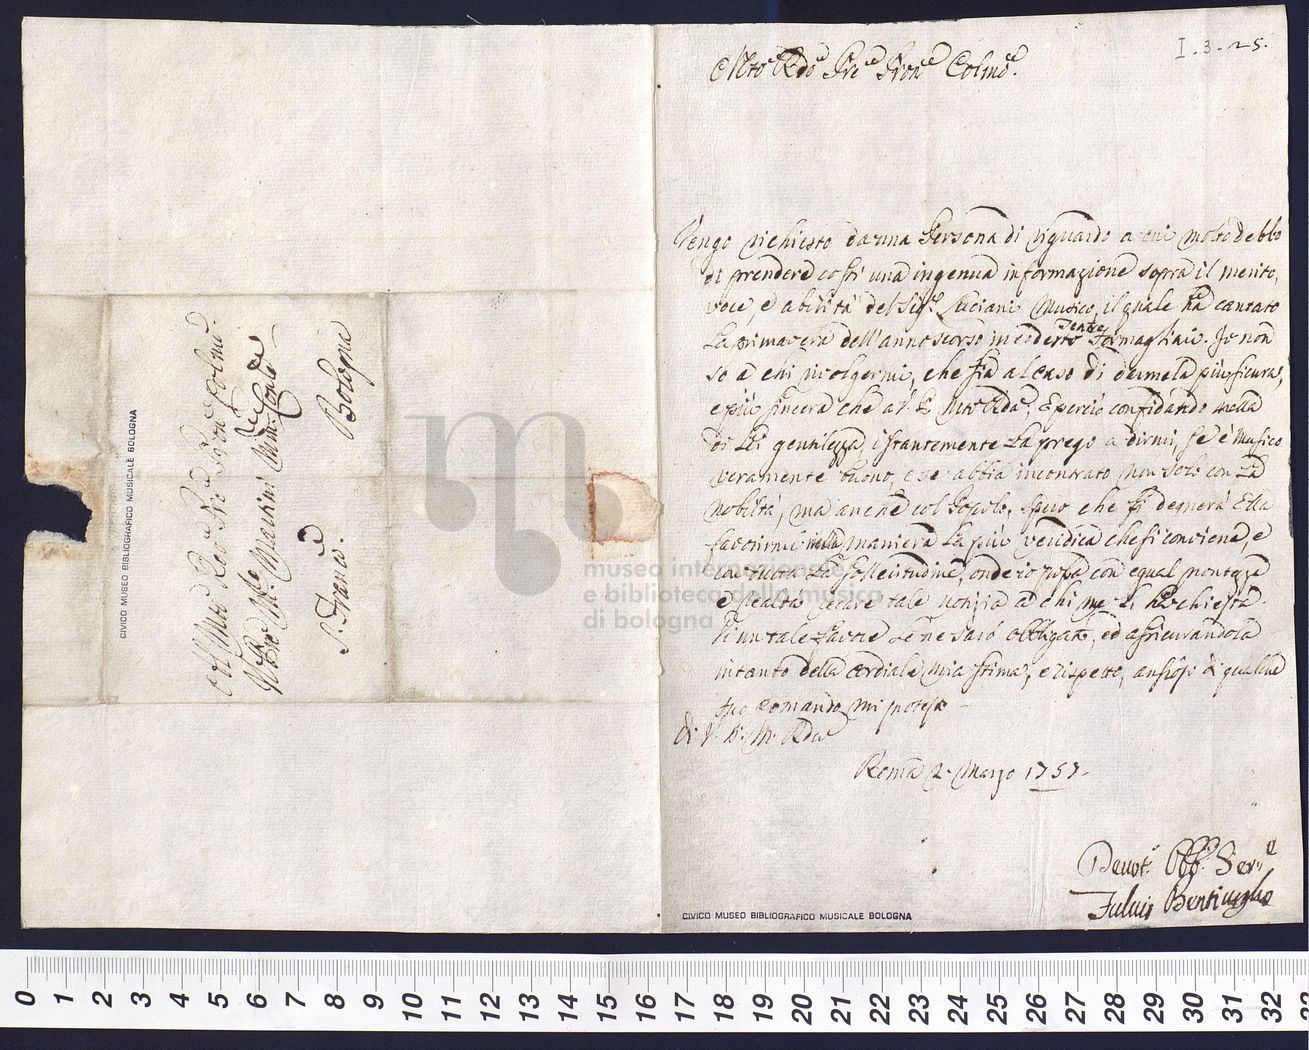 I. 3. 25.
Mto Rdo Pre Pron Colmo.
Vengo richiesto da una Persona di riguardo a cui molto debbo
di prendere costì una ingenua informazione sopra il merito,
voce, e abilità del Sigr. Luciani Musico, il quale ha cantato
la primavera dell'anno scorso in codesto Teatro Formagliari. Io non
so a chi rivolgermi, che sia al caso di darmela più sicura,
e più sincera che a V. P. Mto Rda, e perciò confidando nella
di Lei gentilezza, istantemente la prego a dirmi, se è Musico
veramente buono, e se abbia incontrato non solo con la
Nobiltà, ma anche col Popolo. Spero che si degnerà Ella
favorirmi nella maniera la più veridica che si conviene, e
con tutta la sollecitudine, onde io possa con egual prontezza
e lealtà tale notizia a chi me l'ha chiesta.
Di un tale favore Le ne sarò obbligato, ed assicurandola
intanto della cordiale mia stima, e rispetto, ansioso di qualche
suo comando mi protesto
Di V. P. M. Rda
Roma 2. Marzo 1757.
Devot. Obb. Ser.
Fulvio Bentivoglio
CIVICO MUSEO BIBLIOGRAFICO MUSICALE BOLOGNA
Al Mto Rev. Pre Pron Colmo.
Martini Min. Conle
S. Franco.
Bologna
CIVICO MUSEO BIBLIOGRAFICO MUSICALE BOLOGNA
museo internazionale
e biblioteca della musica
di bologna
0 1 2 3 4 5 6 7 8 9 10 11 12 13 14 15 16 17 18 19 20 21 22 23 24 25 26 27 28 29 30 31 32